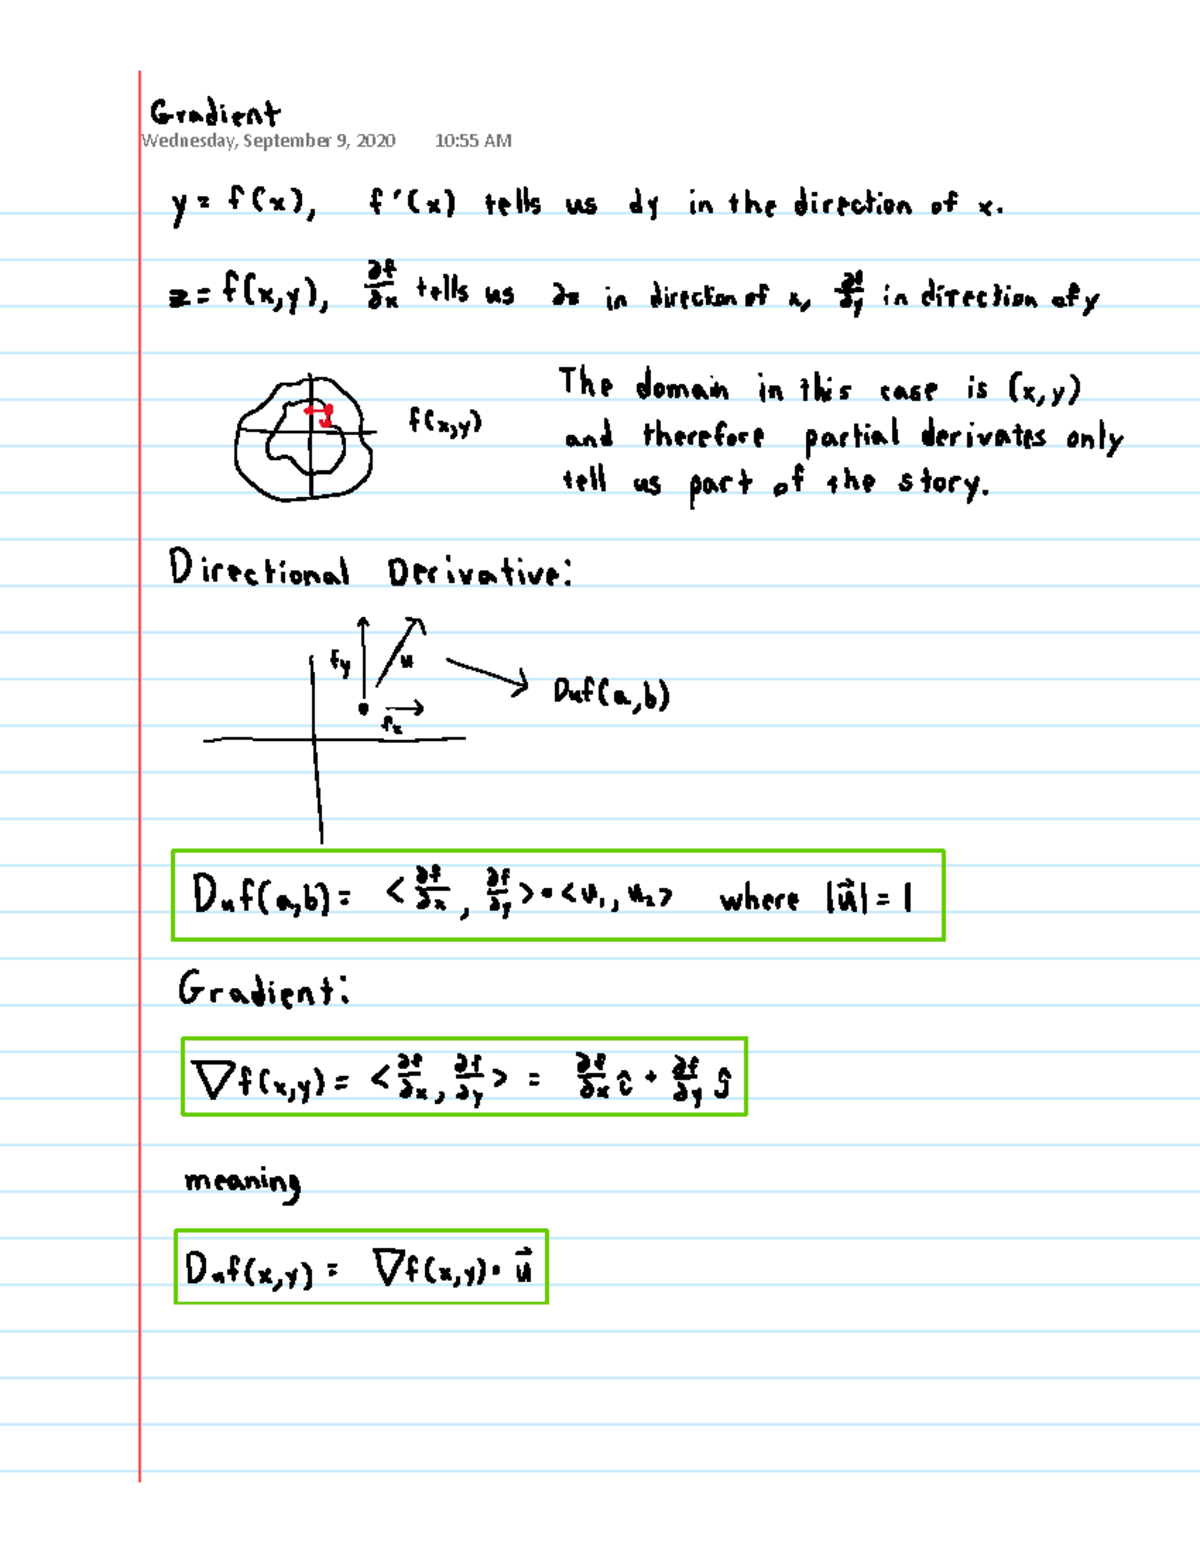 Gradient
Wednesday, September 9, 2020 10:55 AM
y = f(x), f'(x) tells us dy in the direction of x.
z = f(x,y), ∂f/∂x tells us ∂z in direction of x, ∂f/∂y in direction of y
f(x,y)
The domain in this case is (x,y)
and therefore partial derivates only
tell us part of the story.
Directional Derivative:
fy u
Duf(a,b)
fx
Duf(a,b) = <∂f/∂x, ∂f/∂y> • <u₁, u₂> where |u⃗| = 1
Gradient:
∇f(x,y) = <∂f/∂x, ∂f/∂y> = ∂f/∂x î + ∂f/∂y ĵ
meaning
Duf(x,y) = ∇f(x,y) • u⃗